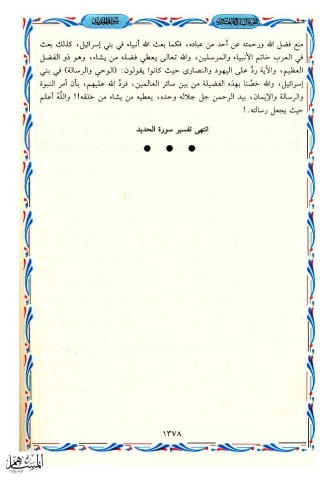 سورة الحديد
منع فضل الله ورحمته عن أحد من عباده، فكما بعث الله أنبياء في بني إسرائيل، كذلك بعث
في العرب خاتم الأنبياء والمرسلين، والله تعالى يعطي فضله من يشاء، وهو ذو الفضل
العظيم، والآية ردٌّ على اليهود والنصارى حيث كانوا يقولون: (الوحي والرسالة) في بني
إسرائيل، والله خصَّنا بهذه الفضيلة من بين سائر العالمين، فردَّ الله عليهم، بأن أمر النبوة
والرسالة والإيمان، بيد الرحمن جل جلاله وحده، يعطيه من يشاء من خلقه!! واللَّهُ أعلم
حيث يجعل رسالته.!
انتهى تفسير سورة الحديد
● ● ●
١٣٧٨